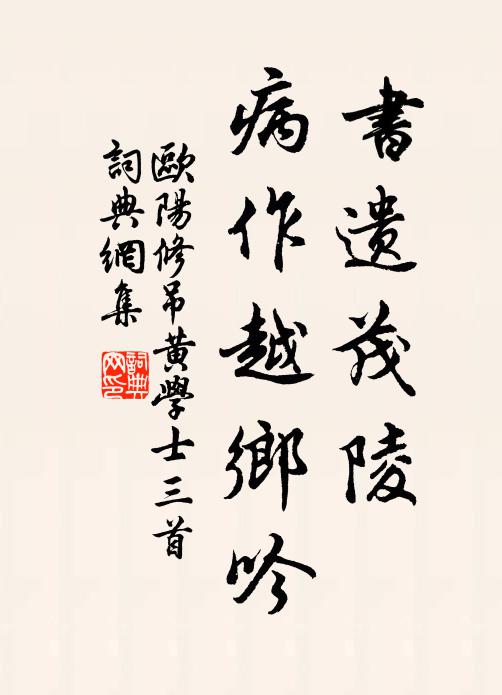 書遺茂陵
病作越鄉吟
歐陽修吊黃學士三首
詞典網集
詞典
网印